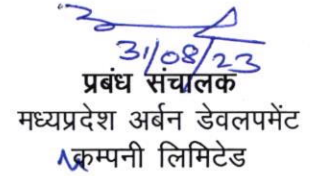 31/08/23
प्रबंध संचालक
मध्यप्रदेश अर्बन डेवलपमेंट
कम्पनी लिमिटेड